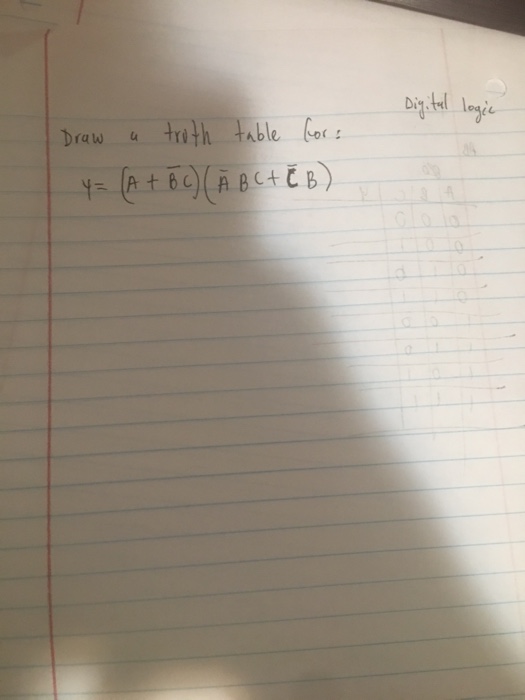 Digital logic
Draw a truth table for:
y = (A + B̄C)(ĀBC + C̄B)